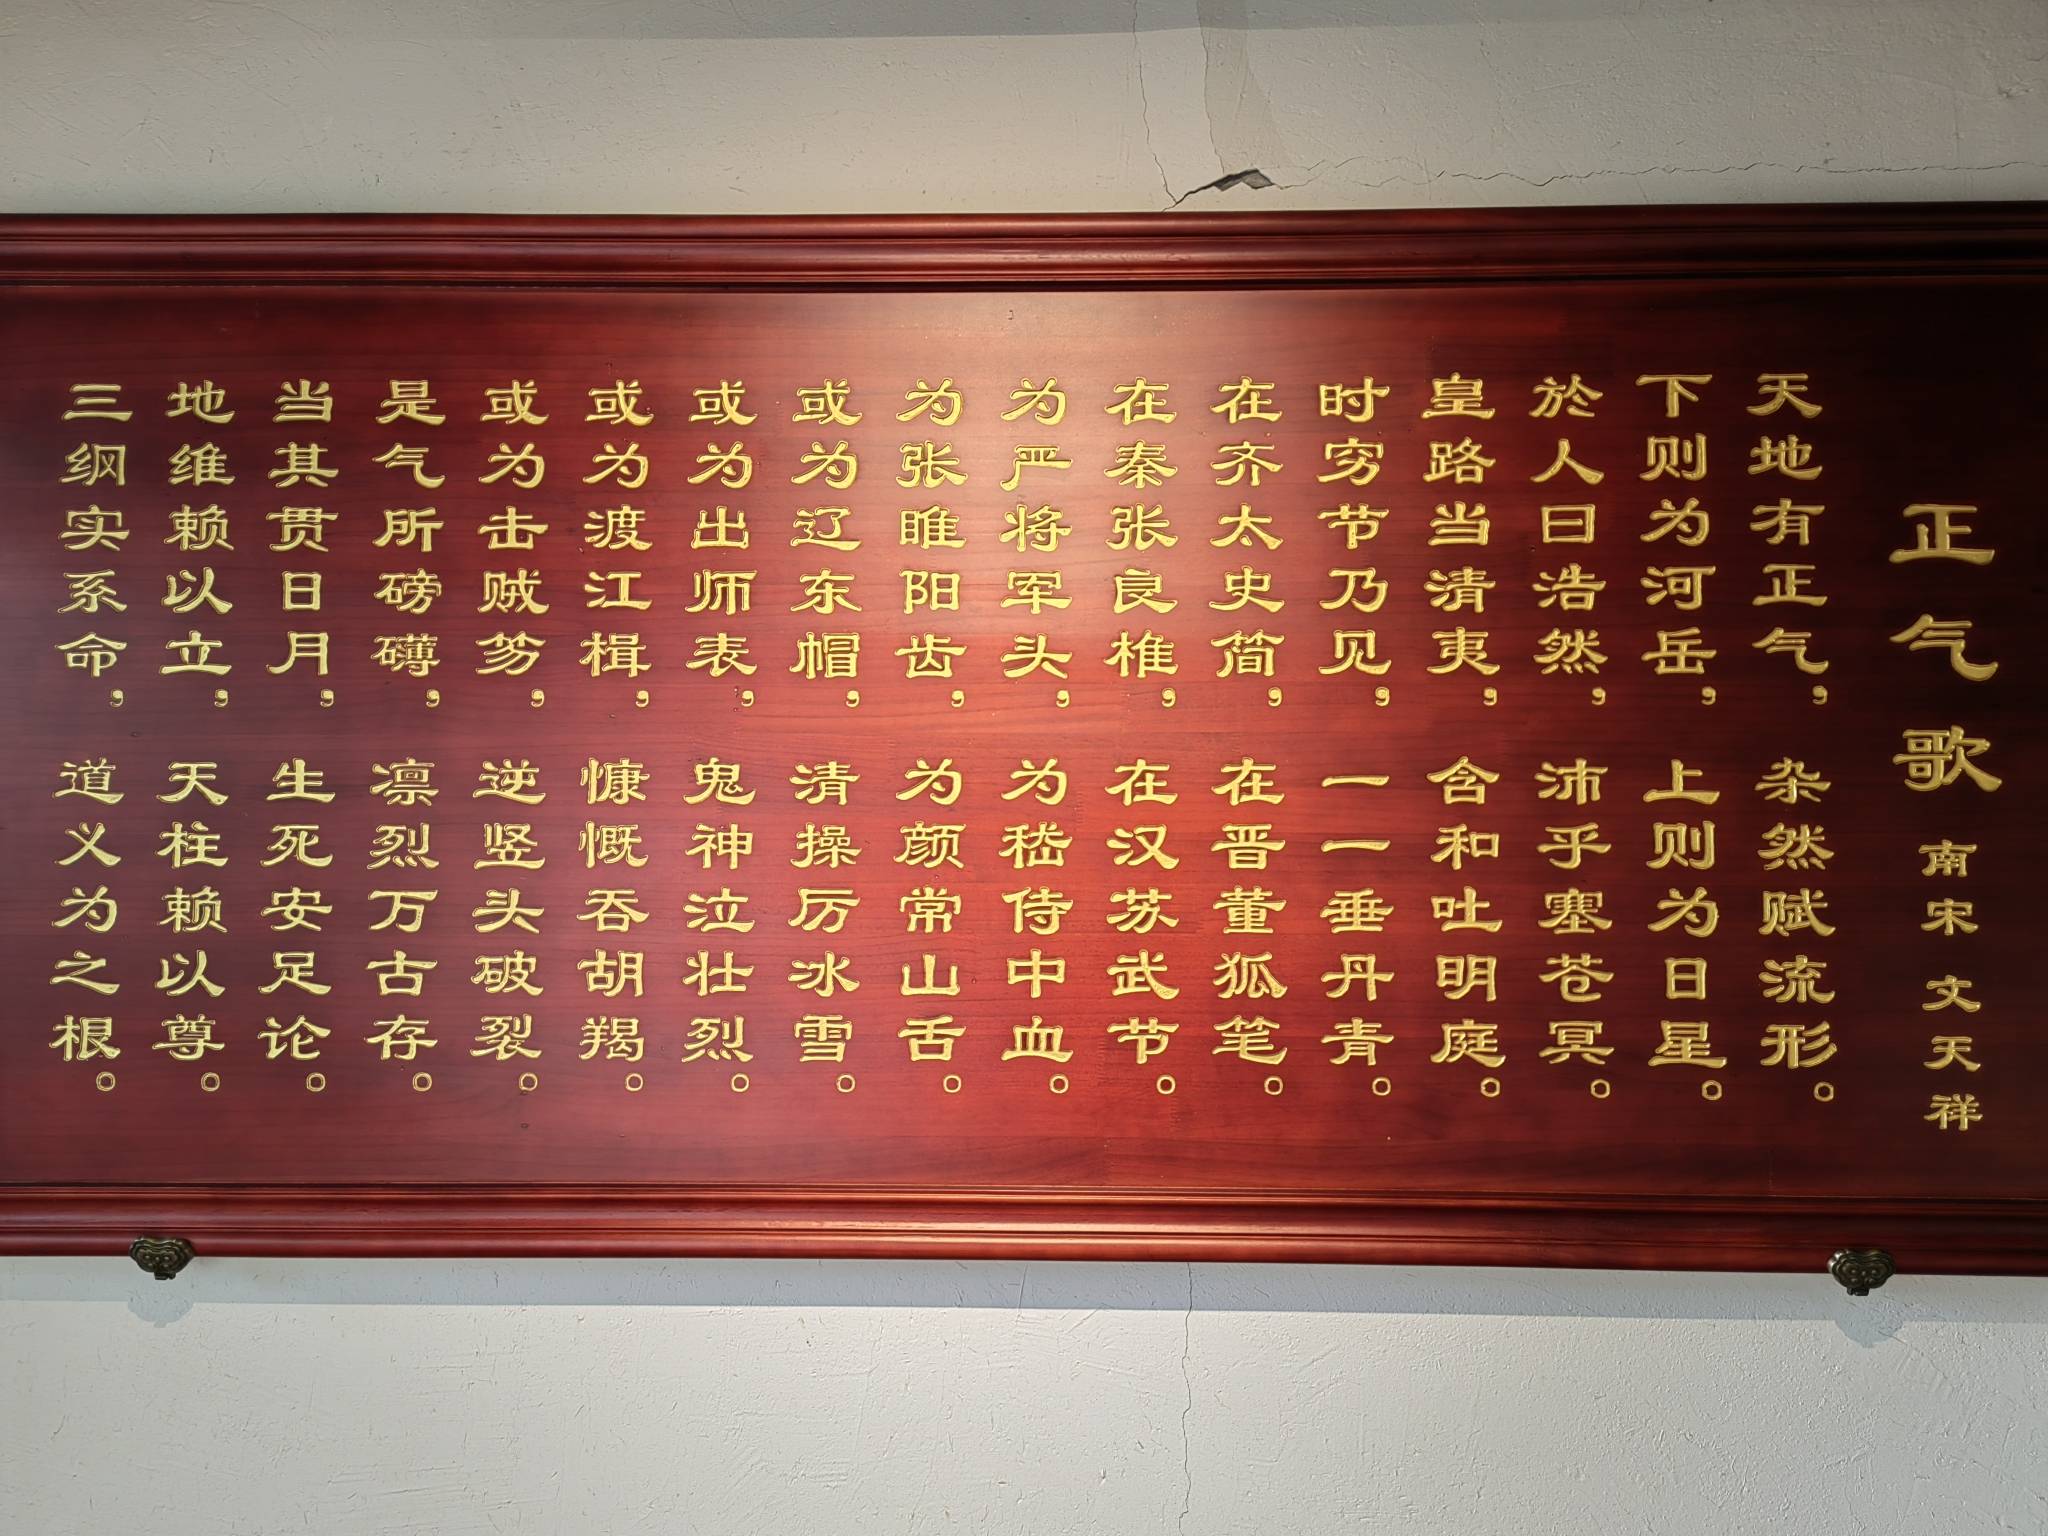 正气歌 南宋 文天祥
天地有正气，杂然赋流形。
下则为河岳，上则为日星。
於人曰浩然，沛乎塞苍冥。
皇路当清夷，含和吐明庭。
时穷节乃见，一一垂丹青。
在齐太史简，在晋董狐笔。
在秦张良椎，在汉苏武节。
为严将军头，为嵇侍中血。
为张睢阳齿，为颜常山舌。
或为辽东帽，清操厉冰雪。
或为出师表，鬼神泣壮烈。
或为渡江楫，慷慨吞胡羯。
或为击贼笏，逆竖头破裂。
是气所磅礴，凛烈万古存。
当其贯日月，生死安足论。
地维赖以立，天柱赖以尊。
三纲实系命，道义为之根。